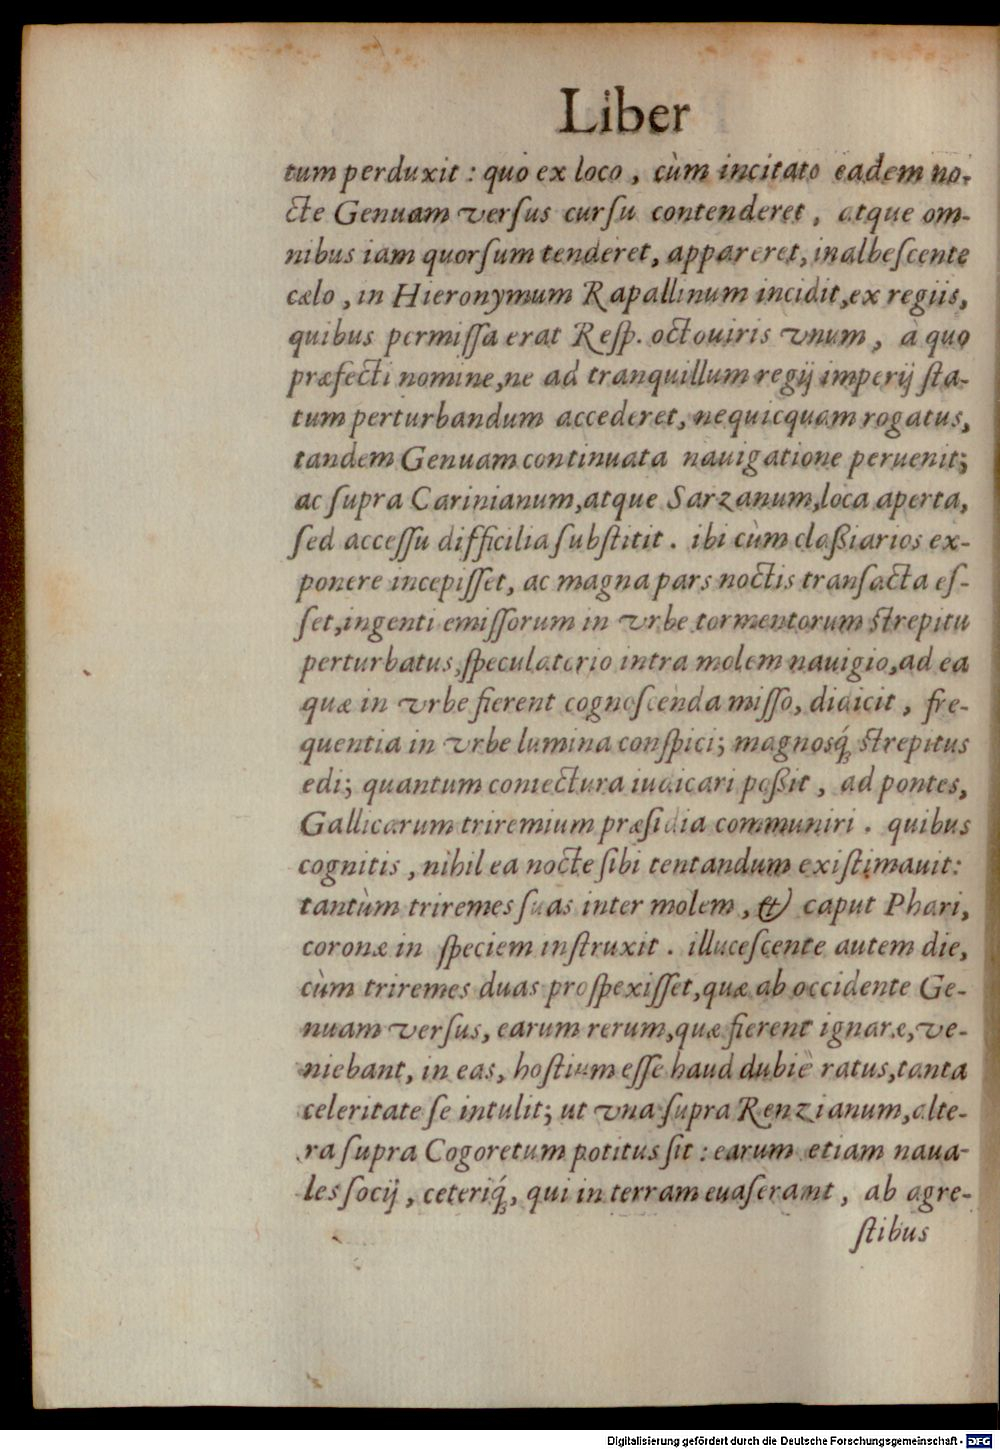 Liber
tum perduxit : quo ex loco , cùm incitato eadem no-
cte Genuam versus cursu contenderet , atque om-
nibus iam quorsum tenderet, appareret, inalbescente
cælo , in Hieronymum Rapallinum incidit, ex regiis,
quibus permissa erat Resp. octouiris vnum , à quo
præfecti nomine, ne ad tranquillum regij imperij sta-
tum perturbandum accederet, nequicquam rogatus,
tandem Genuam continuata nauigatione peruenit;
ac supra Carinianum, atque Sarzanum, loca aperta,
sed accessu difficilia substitit . ibi cùm claßiarios ex-
ponere incepisset, ac magna pars noctis transacta es-
set, ingenti emissorum in vrbe tormentorum strepitu
perturbatus, speculatorio intra molem nauigio, ad ea
quæ in vrbe fierent cognoscenda misso, didicit , fre-
quentia in vrbe lumina conspici; magnosq́; strepitus
edi; quantum coniectura iudicari poßit , ad pontes,
Gallicarum triremium præsidia communiri . quibus
cognitis , nihil ea nocte sibi tentandum existimauit:
tantùm triremes suas inter molem , & caput Phari,
coronæ in speciem instruxit . illucescente autem die,
cùm triremes duas prospexisset, quæ ab occidente Ge-
nuam versus, earum rerum, quæ fierent ignaræ, ve-
niebant, in eas, hostium esse haud dubiè ratus, tanta
celeritate se intulit; ut vna supra Renzianum, alte-
ra supra Cogoretum potitus sit : earum etiam naua-
les socij , ceteriq́;, qui in terram euaserant , ab agre-
stibus
Digitalisierung gefördert durch die Deutsche Forschungsgemeinschaft - DFG